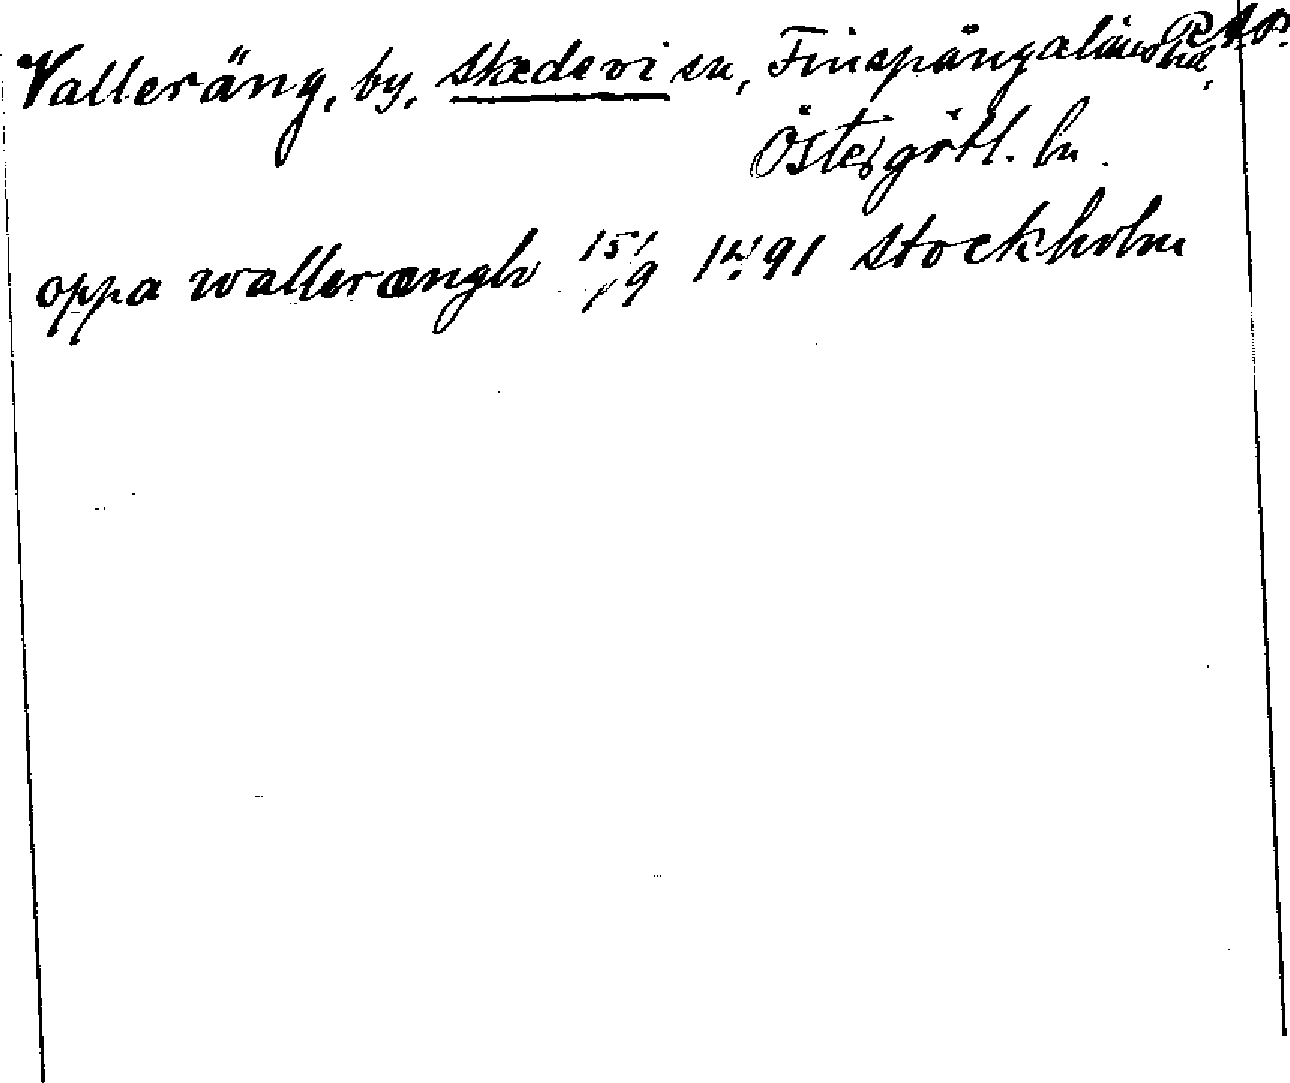 Valleräng, by, Skedevi sn, Finspångalänshd,
Östergötl. ln.
oppa wallerængh 15/9 1491 Stockholm